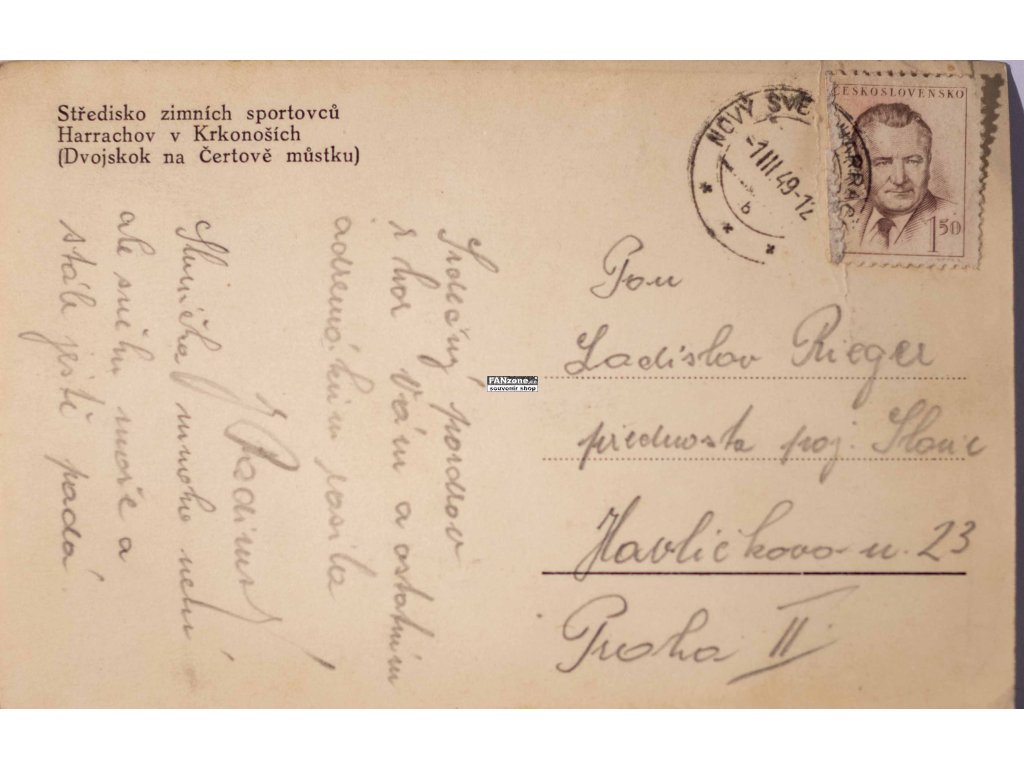 Středisko zimních sportovců
Harrachov v Krkonoších
(Dvojskok na Čertově můstku)
NOVÝ SVĚ
HARRACH
-1 III 49-12
b
ČESKOSLOVENSKO
1 50
Pan
Ladislav Rieger
přednosta poj. Slavie
Havlíčkova u. 23
Praha II
Srdečný pozdrav
z hor Vám a ostatním
zasílá
J
Sluníčka mnoho není
ale sněhu moře a
stále ještě padá
FANzone.cz
souvenir shop